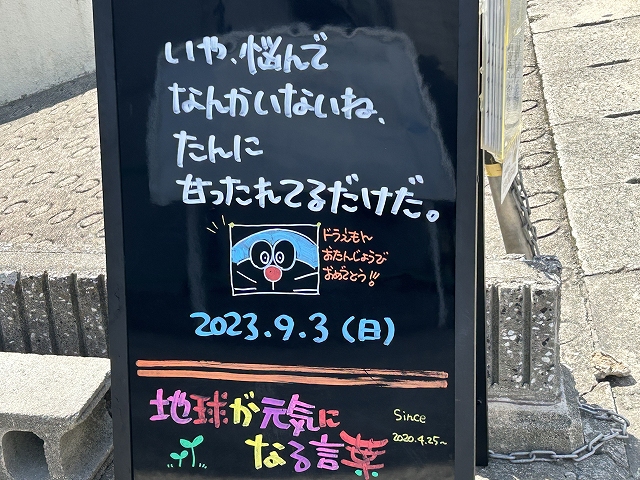 いや、悩んで
なんかいないね、
たんに
甘ったれてるだけだ。
ドラえもん
おたんじょうび
おめでとう!!
2023.9.3(日)
地球が元気に
なる言葉
Since
2020.4.25~